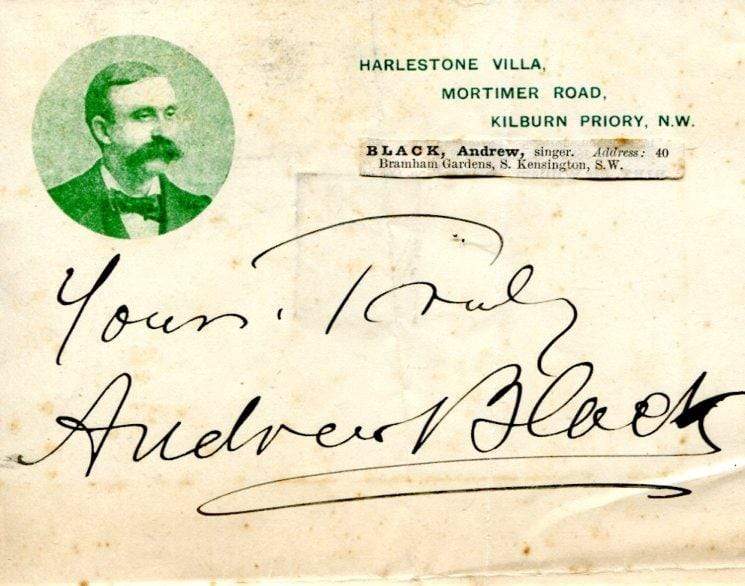 HARLESTONE VILLA,
MORTIMER ROAD,
KILBURN PRIORY, N.W.
BLACK, Andrew, singer. Address: 40
Bramham Gardens, S. Kensington, S.W.
Yours. Truly
Andrew Black